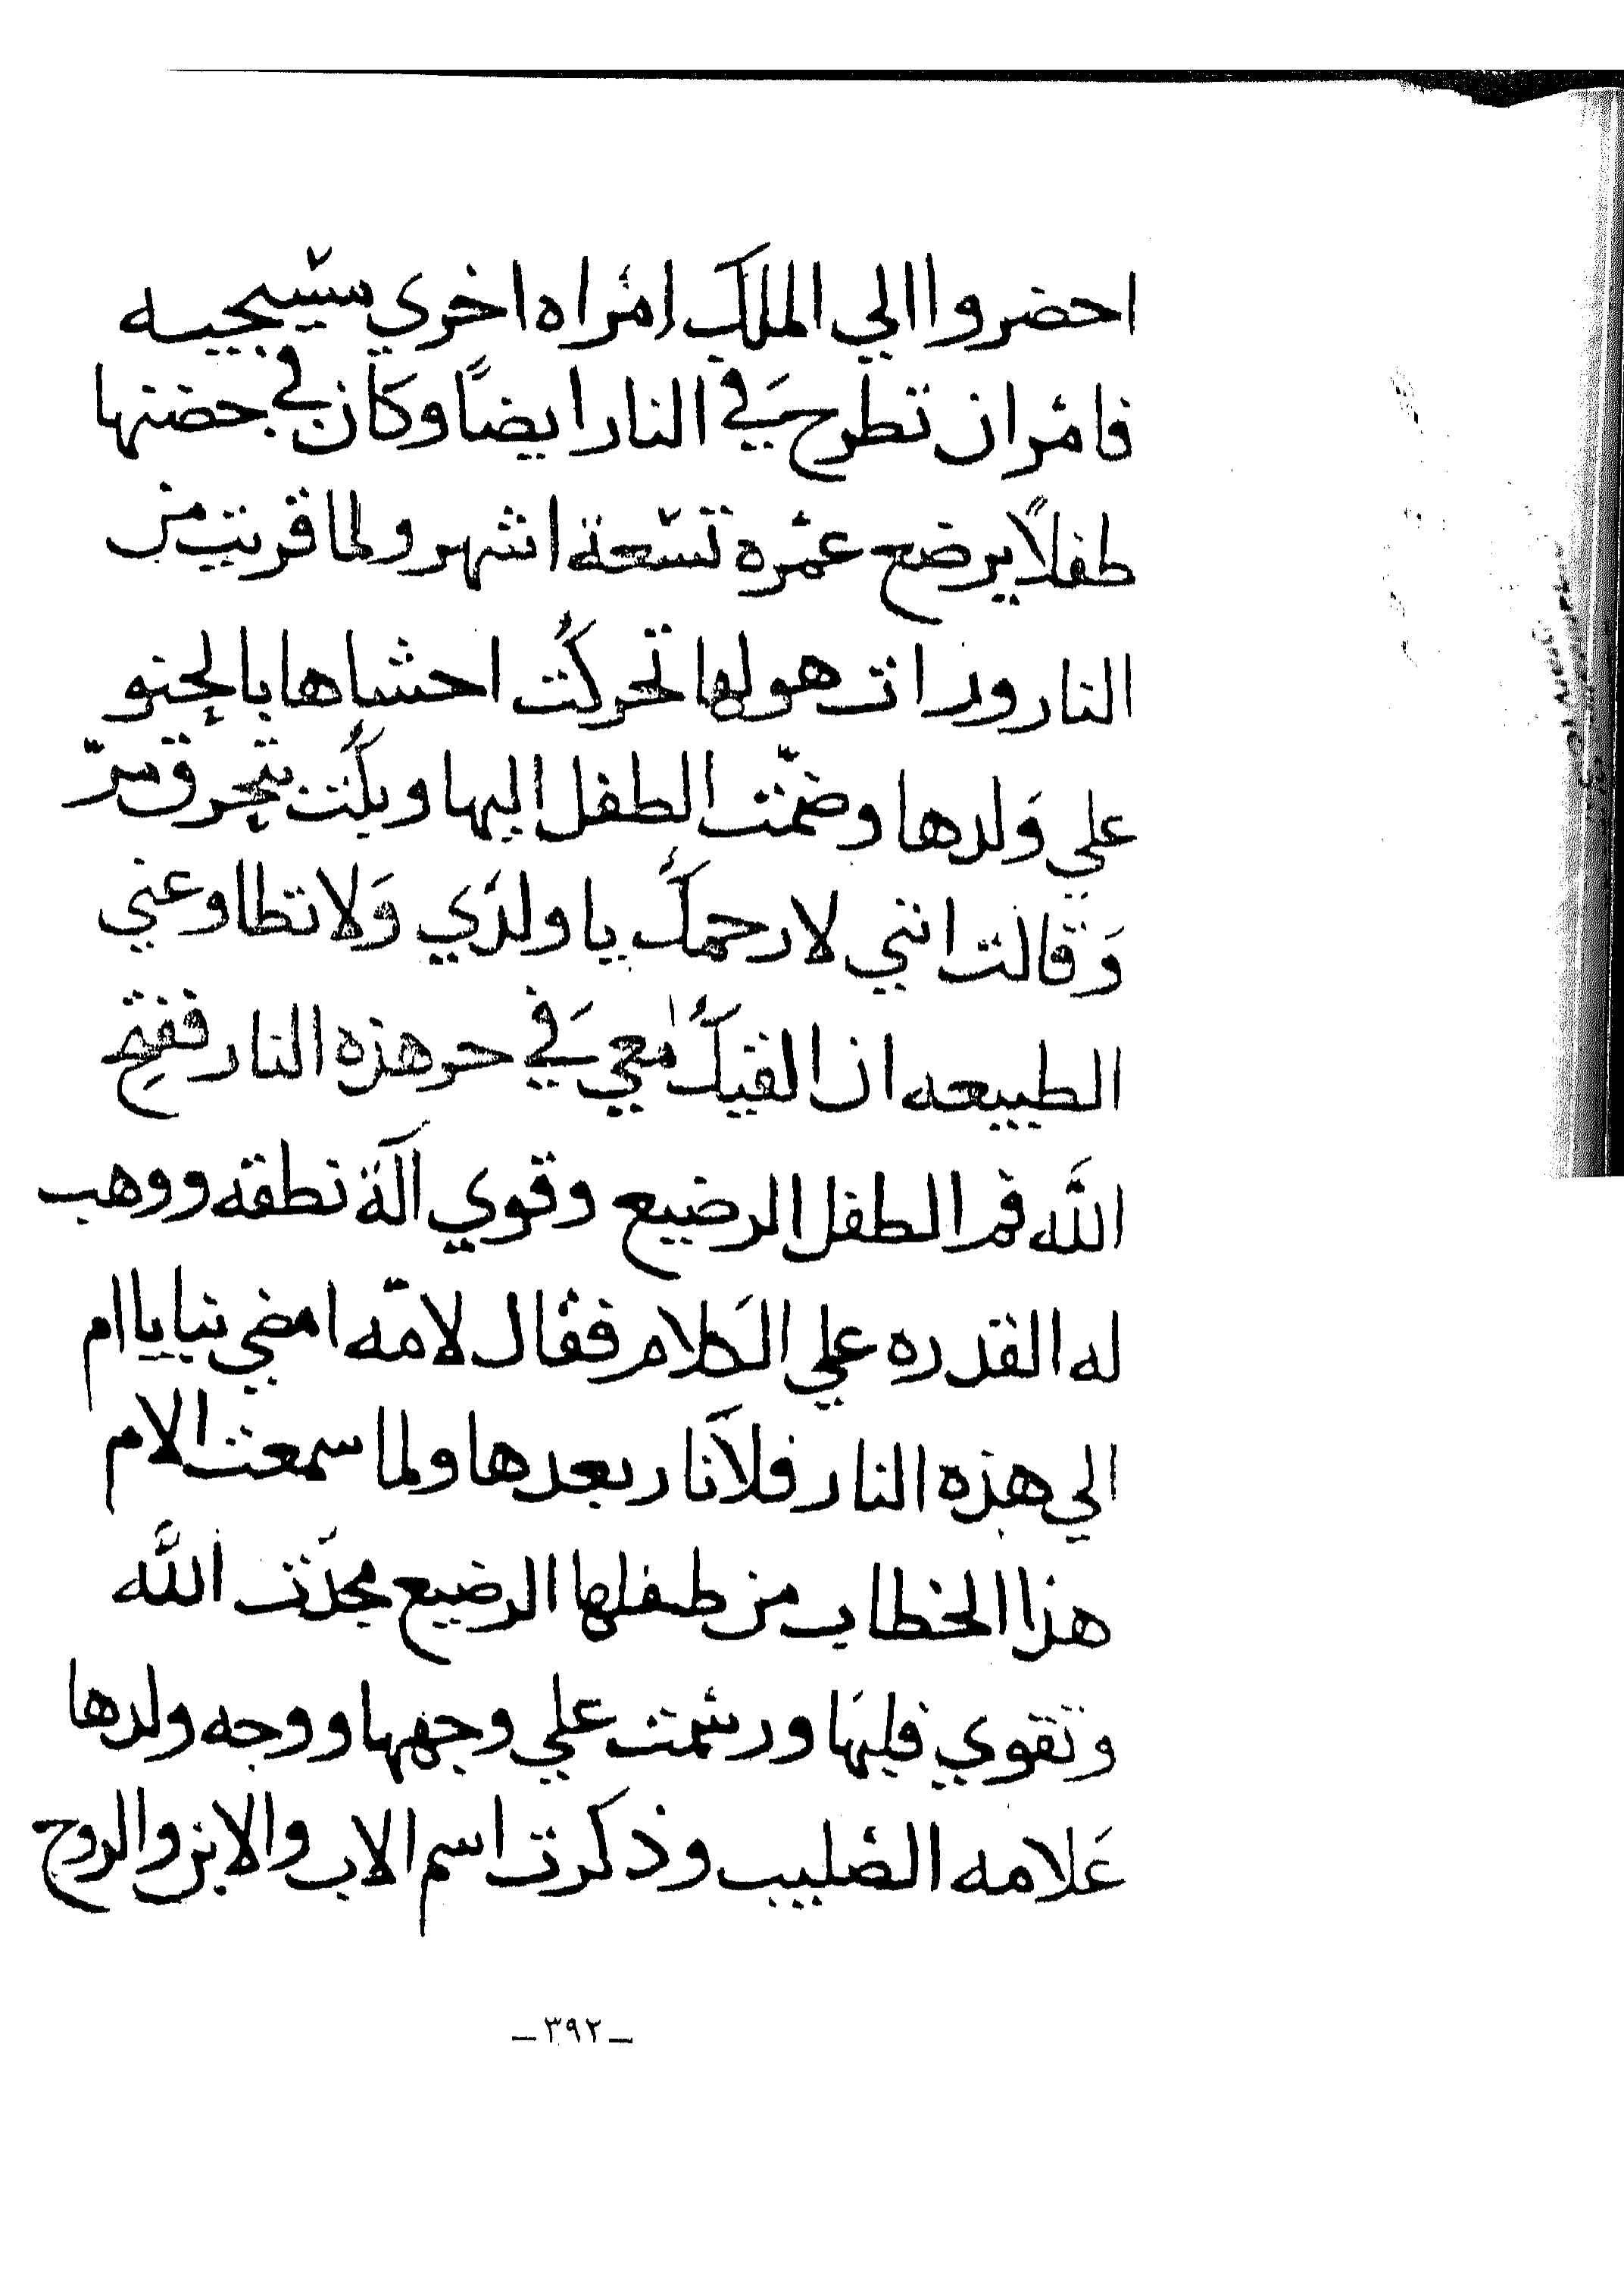 احضروا الي الملك امراه اخري مسيحيه
فامر ان تطرح في النار ايضًا وكان في حضنها
طفلاً يرضع عمره تسعة اشهر ولما قربت من
النار ورات هولها تحركت احشاها بالحنو
علي ولدها وضمّت الطفل اليها وبكت بتحرق مرّ
وقالت انني لارحمك يا ولدي ولا تطاوعني
الطبيعه ان القيك معي في حر هذه النار ففتح
اللَّه فم الطفل الرضيع وقوي آلة نطقه ووهب
له القدره علي الكلام فقال لامّه امضي بنا يا ام
الي هذه النار فلا نار بعدها ولما سمعت الام
هذا الخطاب من طفلها الرضيع مجدت اللَّه
وتقوي قلبها ورشمت علي وجهها ووجه ولدها
علامه الصليب وذكرت اسم الاب والابن والروح
ـ٣٩٢ـ